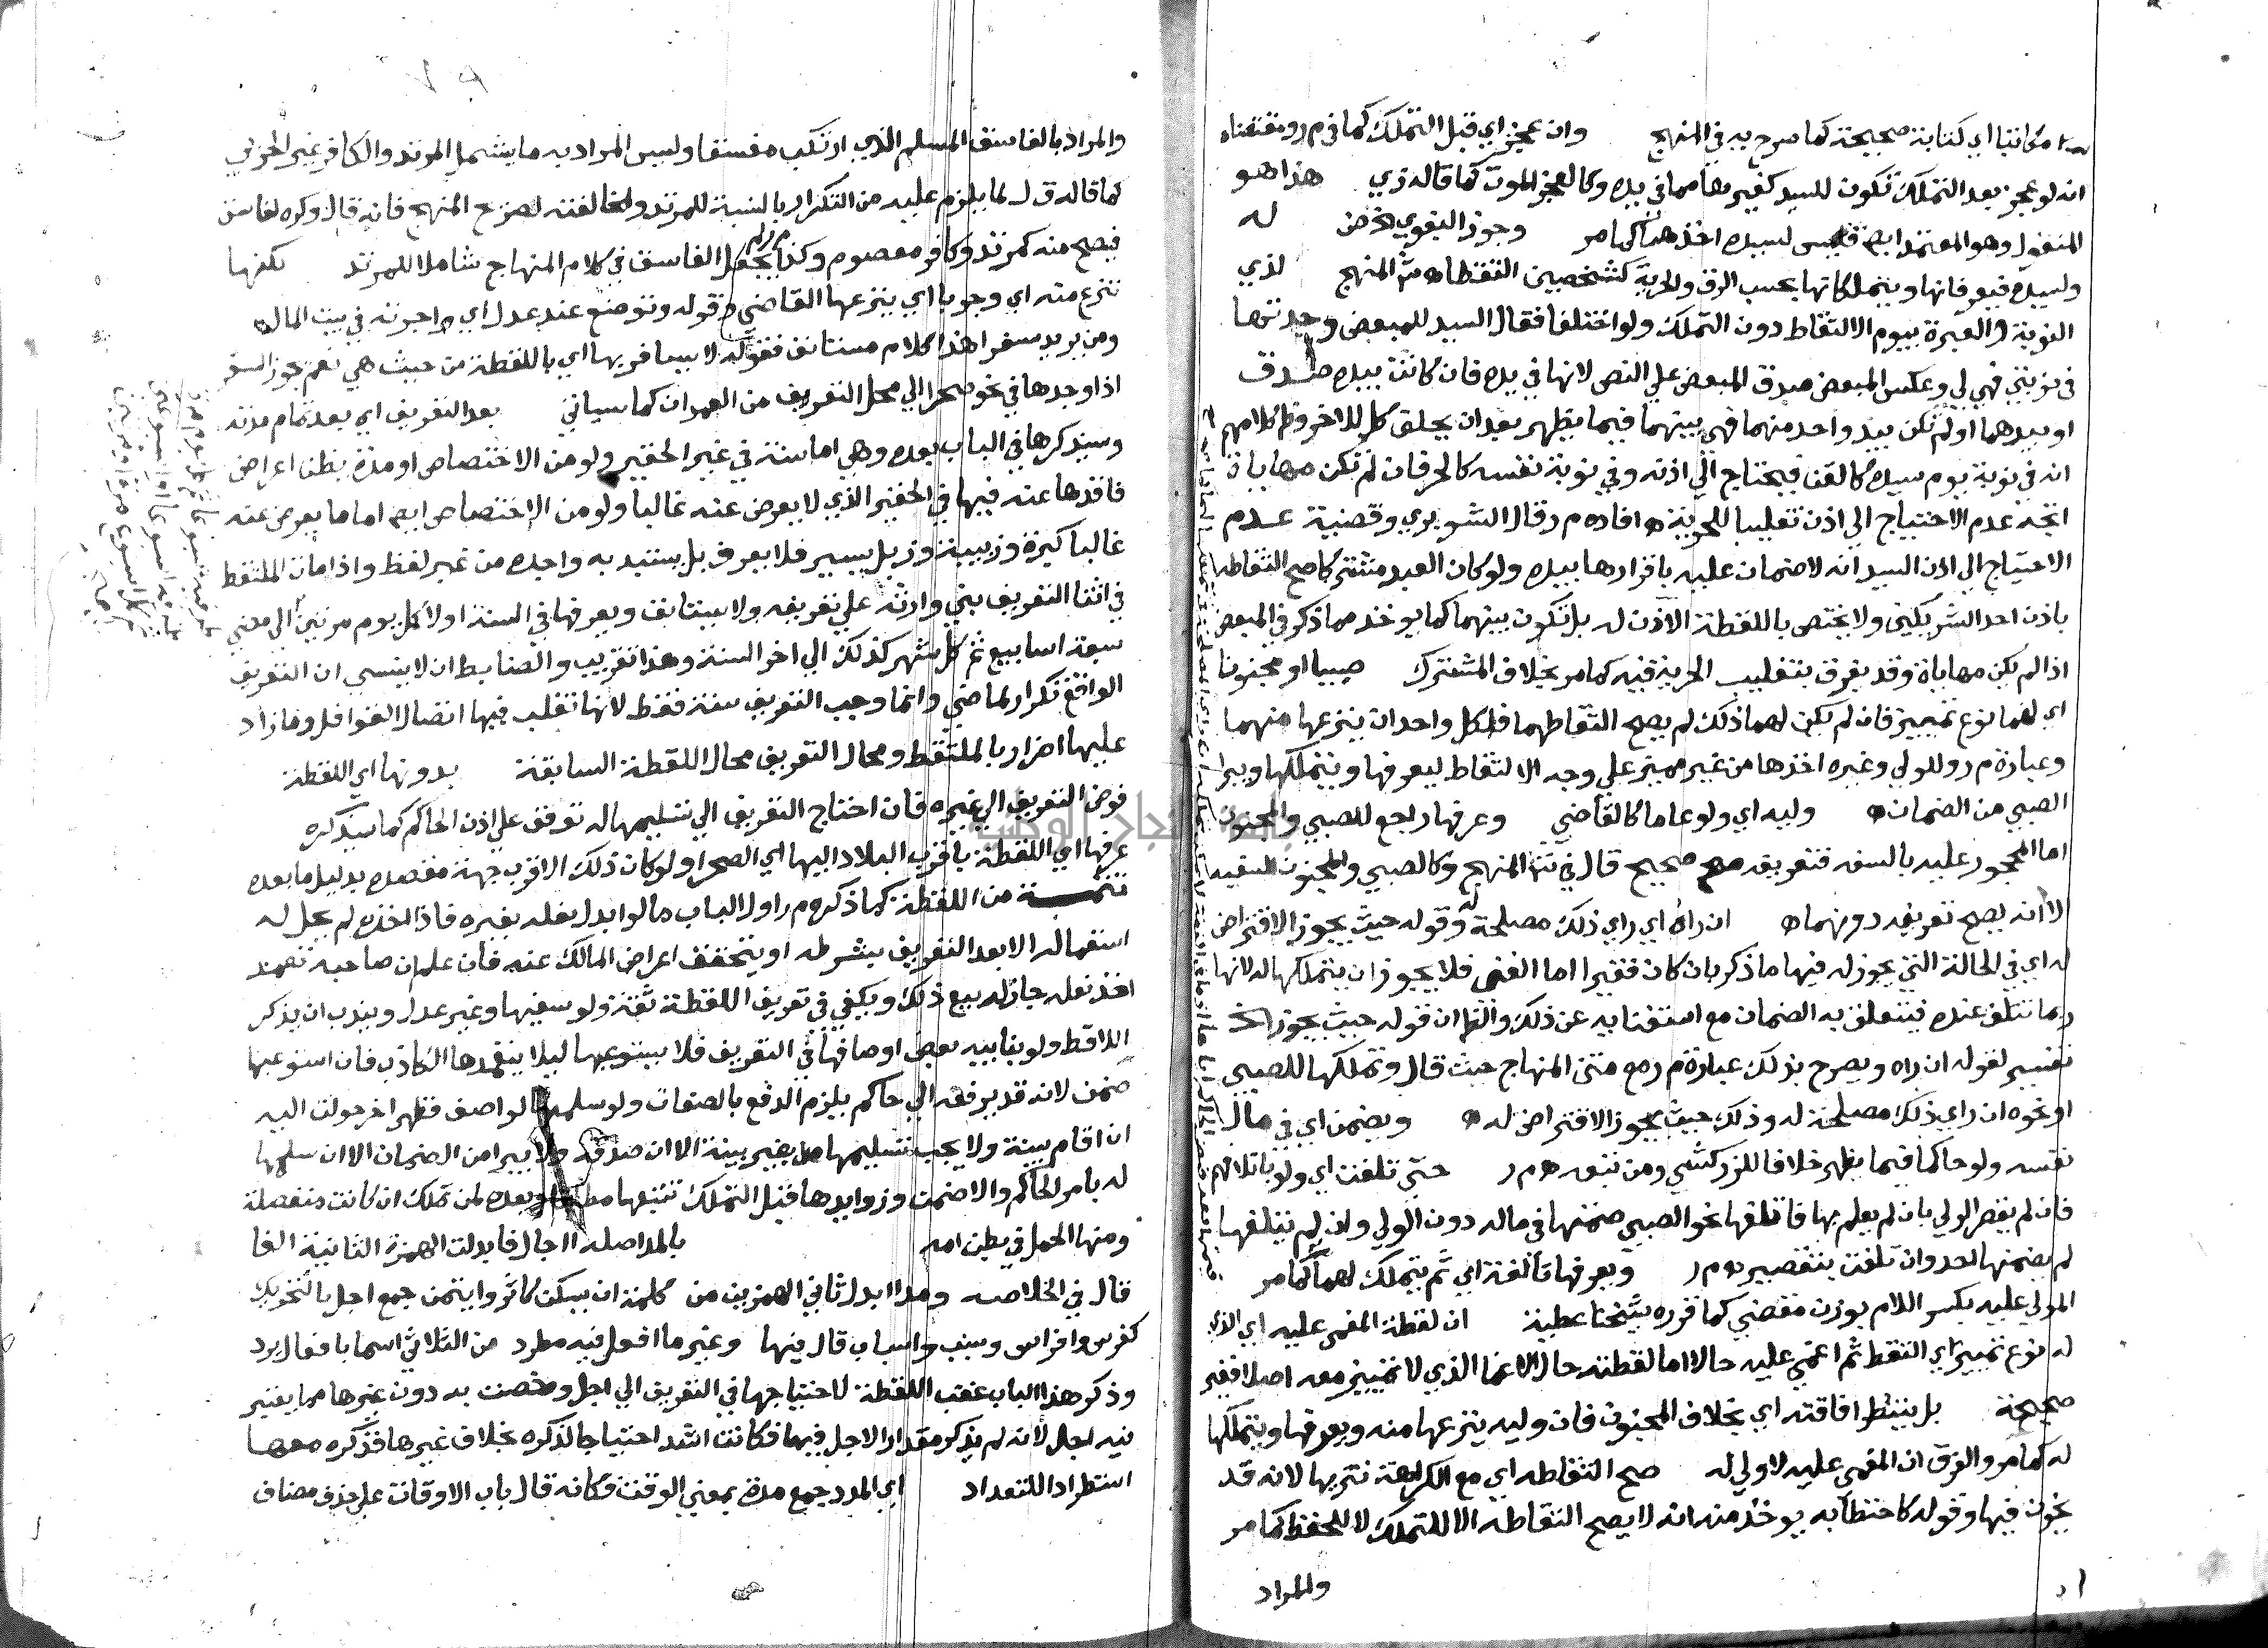 مكاتبا اي كتابة صحيحة كما صرح به في المنهج وان عجز اي قبل التملك كما في م ر ومقتضاه
انه لو عجز بعد التملك تكون للسيد كغيرها مما في يده وكالعجز الموت كما قاله زي هذا هو
المنقول وهو المعتمد فليس لسيده اخذها كما مر وجوز البغوي له
ولسيده فيعرفانها ويتملكانها بحسب الرق والحرية كشخصين التقطا ه المنهج لذي
النوبة والعبرة بيوم الالتقاط دون التملك ولو اختلفا فقال السيد للمبعض وجدتها
في نوبتي فهي لي وعكس المبعض صدق المبعض علي النص لانها في يده فان كانت بيده صدق
او بيدهما او لم تكن بيد واحد منهما فهي بينهما فيما يظهر بعد ان يحلف كل للاخر وظ كلامهم
انه في نوبة يوم سيده كالقن فيحتاج الي اذنه وفي نوبة نفسه كالحر فان لم تكن مهاياة
اتجه عدم الاحتياج الي اذن تغليبا للحرية ه افاده م ر قال الشوبري وقضية عدم
الاحتياج الي اذن السيد انه لا ضمان عليه باقرارها بيده ولو كان العبد مشتركا صح التقاطه
باذن احد الشريكين ولا يختص باللقطة الآذن له بل تكون بينهما كما يوخذ مما ذكر في المبعض
اذا لم يكن مهاياة وقد يفرق بتغليب الحرية فيه كما مر بخلاف المشترك صبيا او مجنونا
اي لهما نوع تمييز فان لم يكن لهما ذلك لم يصح التقاطهما فلكل واحد ان ينزعها منهما
وعبارة م ر وللولي وغيره اخذها من غير مميز علي وجه الالتقاط ليعرفها ويتملكها ويبرا
الصبي من الضمان ه وليه اي ولو عاما كالقاضي وعرفها راجع للصبي والمجنون
اما المحجور عليه بالسفه فتعريفه صحيح قال في المنهج وكالصبي والمجنون السفيه
الا انه يصح تعريفه دونهما ه ان راه اي راي ذلك مصلحة له وقوله حيث يجوز الاقتراض
له اي في الحالة التي يجوز له فيها ما ذكر بان كان فقيرا اما الغني فلا يجوز ان يتملكها له لانها
ربما تتلف عنده فيتعلق به الضمان مع استغنايه عن ذلك وان قوله حيث يجوز الخ
تفسير لقوله ان راه ويصرح بذلك عبارة م ر مع متن المنهاج حيث قال وتملكها للصبي
او نحوه ان راي ذلك مصلحة له وذلك حيث يجوز الاقتراض له ه ويضمن اي في مال
نفسه ولو حاكما فيما يظهر خلافا للزركشي ومن تبعه ه م ر حتي تلفت اي ولو باتلافهم
فان لم يقصر الولي بان لم يعلم بها فاتلفها نحو الصبي ضمنها في ماله دون الولي وان لم يتلفها
لم يضمنها احد وان تلفت بتقصير ه م ر ويعرفها ثم يتملك لهما كما مر
المولي عليه بكسر اللام بوزن مقضي كما قرره شيخنا عطية ان لقطة المغمي عليه اي الذي
له نوع تمييز اي التقط ثم اغمي عليه حالا اما لقطته حال الاغما الذي لا تمييز معه اصلا فغير
صحيحة بل ينتظر افاقته اي بخلاف المجنون فان وليه ينزعها منه ويعرفها ويتملكها
له كما مر والفرق ان المغمي عليه لا ولي له صح التقاطه اي مع الكراهة تنزيها لانه قد
يخون فيها وقوله كاحتطابه يوخذ منه انه لا يصح التقاطه الا للتملك لا للحفظ كما مر
والمراد
والمراد بالفاسق المسلم الذي ارتكب مفسقا وليس المراد به ما يشمل المرتد والكافر غير الحربي
كما قاله ق ل لما يلزم عليه من التكرار بالنسبة للمرتد ولمخالفته لصريح المنهج فانه قال وكره لفاسق
فيصح منه كمرتد وكافر معصوم وكذا م ر لم يجعل الفاسق في كلام المنهاج شاملا للمرتد لكنها
تنزع منه اي وجوبا اي ينزعها القاضي وقوله وتوضع عند عدل اي واجرته في بيت المال ه
ومن يريد سفرا هذا كلام مستانف فقوله لا يسافر بها اي باللقطة من حيث هي نعم يجوز السفر
اذا وجدها في نحو صحرا الي محل التعريف من العمران كما سياتي بعد التعريف اي بعد تمام مدته
وسيذكرها في الباب بعده وهي اما سنة في غير الحقير ولو من الاختصاص او مدة يظن اعراض
فاقدها عنه فيها في الحقير الذي لا يعرض عنه غالبا ولو من الاختصاص ايضا اما ما يعرض عنه
غالبا كبرة وزبيبة وزبل يسير فلا يعرف بل يستبد به واجده من غير لفظ واذا مات الملتقط
في اثنا التعريف بني وارثه علي تعريفه ولا يستانف ويعرفها في السنة اولا كل يوم مرتين الي مضي
سبعة اسابيع ثم كل شهر كذلك الي اخر السنة وهذا تقريب والضابط ان لا ينسي ان التعريف
الواقع تكرار لما مضي وانما وجب التعريف سنة فقط لانها تغلب فيها اتصال القوافل وما زاد
عليها اضرار بالملتقط ومحال التعريف محال اللقطة السابقة بدونها اي اللقطة
فوض التعريف الي غيره فان احتاج التعريف الي تسليمها له توقف علي اذن الحاكم كما سيذكره
عرفها اي اللقطة باقرب البلاد اليها اي الصحرا ولو كان ذلك الاقرب جهة مقصده بدليل ما بعده
تتمة من اللقطة كما ذكره م ر اول الباب ما لو ابدل نعله بغيره فاذا اخذه لم يحل له
استعماله الا بعد التعريف بشرطه او يتحقق اعراض المالك عنه فان علم ان صاحبه تعمد
اخذ نعله جاز له بيع ذلك ويكفي في تعريف اللقطة ثقة ولو سفيها وغير عدل ويندب ان يذكر
اللاقط ولو بنايبه بعض اوصافها في التعريف فلا يستوعبها ليلا يتعمدها الكاذب فان استوعبها
ضمن لانه قد يرفعه الي حاكم يلزم الدفع بالصفات ولو سلمها لواصف فظهر اخر حولت اليه
ان اقام بينة ولا يجب تسليمها بغير بينة الا ان صدقه ولا يبرا من الضمان الا ان سلمها
له بامر الحاكم والا ضمن وزوايدها قبل التملك تتبعها وبعده لمن تملك ان كانت منفصلة
ومنها الحمل في بطن امه بالمد اصله ااجال فابدلت الهمزة الثانية الفا
قال في الخلاصه ومدا ابدل ثاني الهمزين من كلمة ان يسكن كاثر وايتمن جمع اجل بالتحريك
كفرس وافراس وسبب واسباب قال فيها وغير ما افعل فيه مطرد من الثلاثي اسما بافعال يرد
وذكر هذا الباب عقب اللقطة لاحتياجها في التعريف الي اجل وخصت به دون غيرها مما يعتبر
فيه اجل لانه لم يذكر مقدار الاجل فيها فكانت اشد احتياجا لذكره بخلاف غيرها فذكره معها
استطرادا للتعداد اي المدد جمع مدة بمعني الوقت فكانه قال باب الاوقات علي حذف مضاف